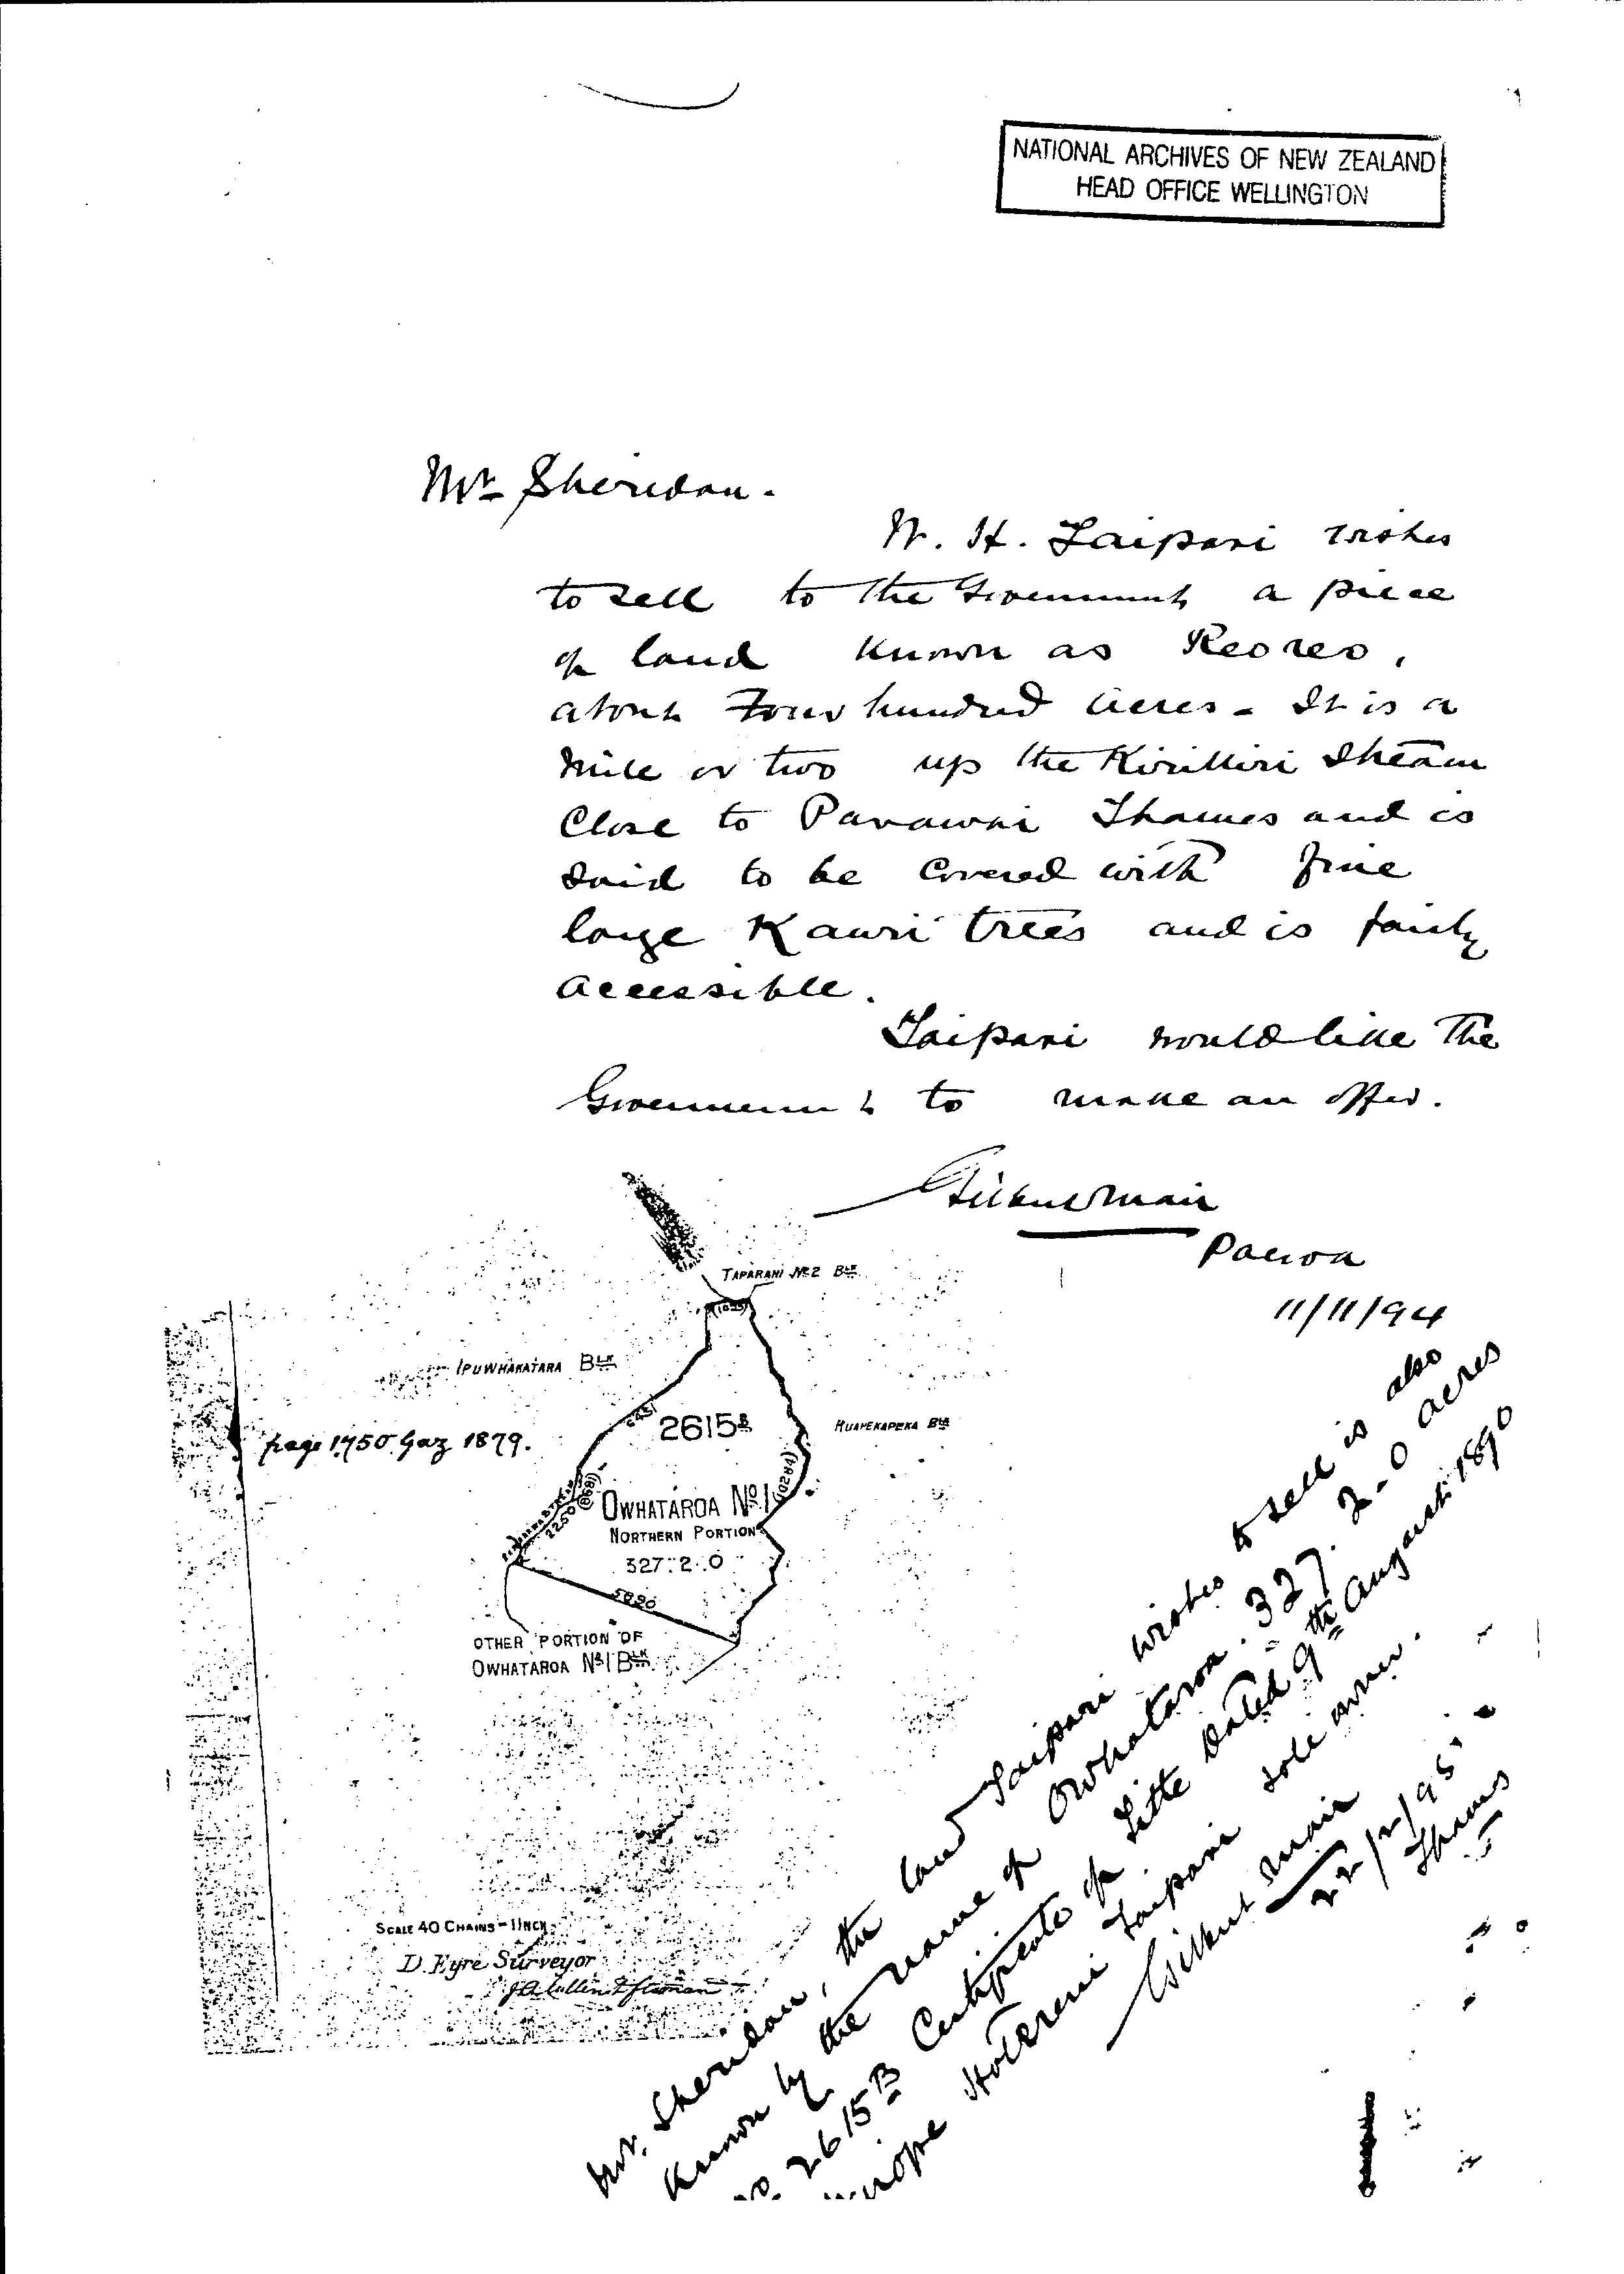 NATIONAL ARCHIVES OF NEW ZEALAND
HEAD OFFICE WELLINGTON
Mr Sheridan.
W. H. Taipari wishes
to sell to the Government a piece
of land known as Reoreo,
about Four hundred acres - It is a
mile or two up the Kirikiri Stream
Close to Parawai Thames and is
said to be Covered with fine
large Kauri trees and is fairly
accessible.
Taipari would like the
Government to make an offer.
Gilbert Mair
Paeroa
11/11/94
TAPARAHI No 2 BLK
IPUWHAKATARA BLK
2615B
RUAPEKAPEKA BLK
page 1750 Gaz 1879.
OWHATAROA No 1
NORTHERN PORTION
2250
327:2:0
OTHER PORTION OF
OWHATAROA No 1 BLK
SCALE 40 CHAINS = 1 INCH
D. Eyre Surveyor
Mr. Sheridan, the land Taipari wishes to sell is also
known by the name of Owhataroa. 327. 2-0 acres
No. 2615B Certificate of Title dated 9th August 1890
Hotereni Taipari sole owner.
Gilbert Mair
22/2/95
Thames